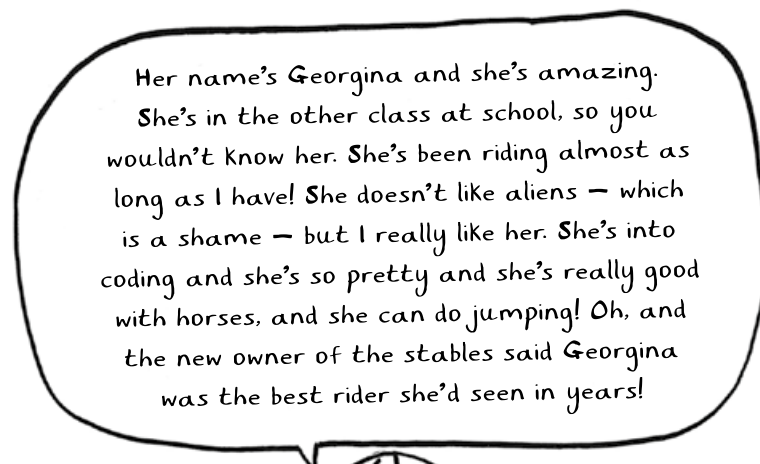 Her name's Georgina and she's amazing.
She's in the other class at school, so you
wouldn't know her. She's been riding almost as
long as I have! She doesn't like aliens – which
is a shame – but I really like her. She's into
coding and she's so pretty and she's really good
with horses, and she can do jumping! Oh, and
the new owner of the stables said Georgina
was the best rider she'd seen in years!